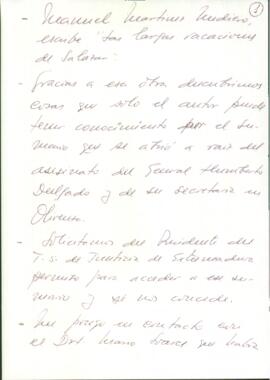 ①
- Manuel Martinez Mediero,
escribe "Las largas vacaciones
de Salazar".
- Gracias a esa obra descubrimos
cosas que solo el autor puede
tener conocimiento por el su-
mario que se abrió a raiz del
asesinato del General Humberto
Delgado y de su secretaria en
Olivenza.
- Solicitamos del Presidente del
T.S. de Justicia de Extremadura
permiso para acceder a ese su-
mario y se nos concede.
- Me pongo en contacto con
el Dr. Mario Soares que había